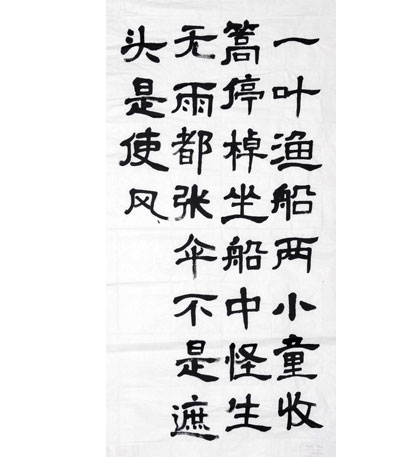 一叶渔船两小童收
篙停棹坐船中怪生
无雨都张伞不是遮
头是使风